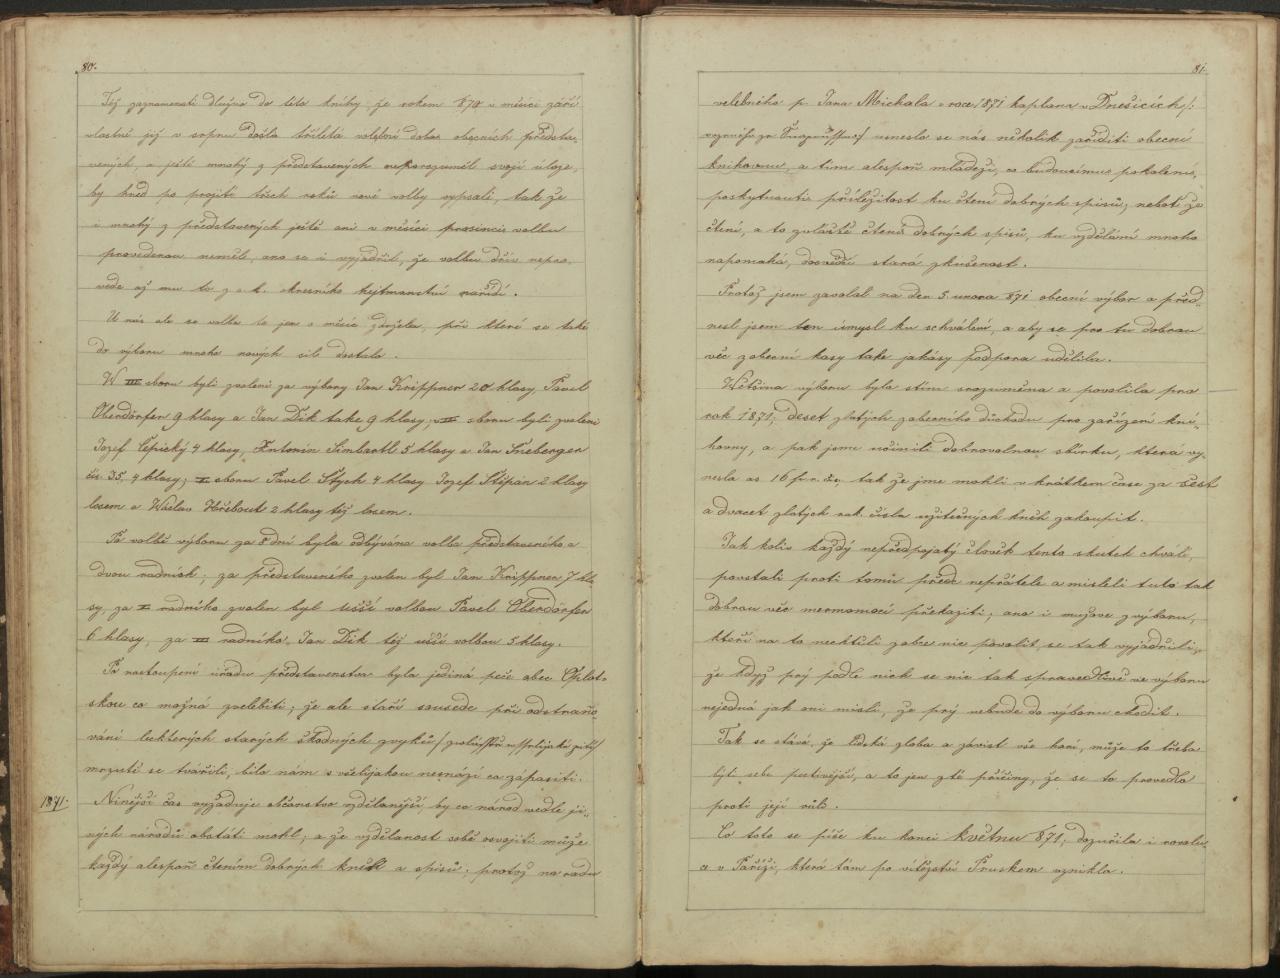 80.
Též zaznamenati dlužno do této knihy, že rokem 870 v měsíci září
vlastně již v srpnu došla tříletá volební doba obecních předsta-
vených, a ještě mnohý z představených neporozuměl svojí úloze,
by hned po projití třech roků nové volby vypsali, tak že
i mnohý z představených ještě ani v měsíci prosinci volbu
provedenou neměli, ano se i vyjadřil, že volbu dřív nepro-
vede až mu to z c. k. okresního hejtmanství nařídí.
U nás ale se volba to jen o měsíc zdržela, při které se také
do výboru mnoho nových sil dostalo.
W III sboru byli zvoleni za výbory Jan Krippner 20 hlasy, Pavel
Oberdörfer 9 hlasy a Jan Dik take 9 hlasy; v II sboru byli zvoleni
Jozef Čepický 4 hlasy, Antonín Simbartl 5 hlasy a Jan Šneberger
čís. 35, 4 hlasy; I sboru Pavel Štych 4 hlasy Jozef Štěpán 2 hlasy
losem a Wáclav Hřebout 2 hlasy též losem.
Po volbě výboru za 8 dní byla odbývána volba představeného a
dvou radních; za představeného zvolen byl Jan Krippner 7 hla-
sy, za I radního zvolen byl užší volbou Pavel Oberdörfer
6 hlasy, za II radního Jan Dik též užší volbou 5 hlasy.
Po nastoupení úřadu představenstva byla jediná péče obec Oplot-
skou co možná zvelebiti; že ale staří sousede při odstraňo-
vání lukterých starých škodných zvyků /
mrzutě se tvářili, bylo nám s všelijakou nesnází co zápasiti.
1871. Ninější čas vyžaduje občanstvo vzdělanější, by co národ vedle ji-
ných národů obstáti mohl; a že vzdělanost sobě osvojiti může
každý alespoň čtením dobrých kněh a spisů; protož na radu
81.
velebného p. Jana Michala v roce 1871 kaplana v Dnešicích /:
usneslo se nás několik zaříditi obecní
knihovnu, a tím alespoň mládeži, co budoucímu pokolení,
poskytnouti příležitost ku čtení dobrých spisů; neboť že
čtení, a to zvláště čtení dobrých spisů, ku vzdělání mnoho
napomahá, dosvědčí stará zkušenost.
Protož jsem zavolal na den 5. února 871 obecní výbor a před-
nesl jsem ten úmysl ku schválení, a aby se pro tu dobrou
věc z obecní kasy take jakási podpora udělila.
Wětšina výboru byla stím srozuměna a povolila pro
rok 1871, deset zlatých z obecního důchodu pro zařízení kni-
hovny, a pak jsme učinili dobrovolnou sbírku, která vy-
nesla as 16 fr. r. č., tak že jme mohli v krátkem čase za šest
a dvacet zlatých rak. čísla užitečných kněh zakoupit.
Jak koliv každý nepředpojatý člověk tento skutek chválí,
povstali proti tomu přece nepřátele a mysleli tuto tak
dobrou věc mermomocí překaziti; ano i mužove z výboru,
kteří na to nechtěli z obce nic povolit, se tak vyjádřili,
že když prý podle nich se nic tak spravedlivě ve výboru
nejedná jak oni mislí, že prý nebude do výboru chodit.
Tak se stává, že lidská zloba a závist vše haní, může to třeba
býti sebe poctivější, a to jen z té příčiny, že se to provedlo
proti její vůli.
Co toto se píše ku konci května 871, dozučila i revolu-
ce v Paříži, která tám po vítězství Pruskem vznikla.